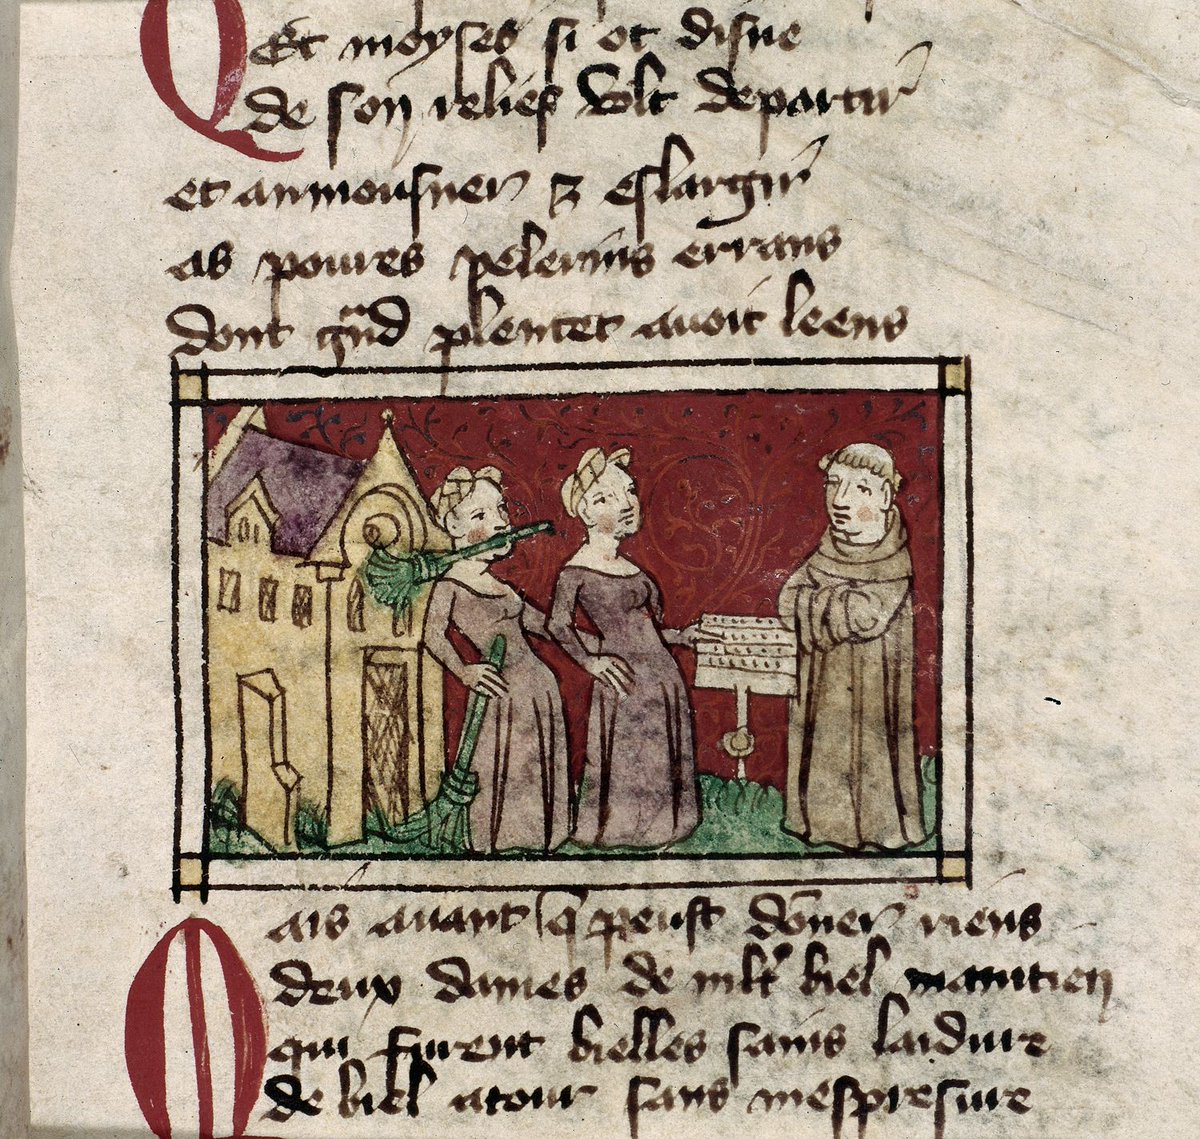 Q Et moyses si ot disne
de son relief volt departir
et aumousner ⁊ eslargir
as poures pelerins errans
dont gnd plentet auoit leens
M ais auant q peust doner riens
deux dames de mlt biel maintien
qui furent bielles sains laidure
de biel atour sans mespresure